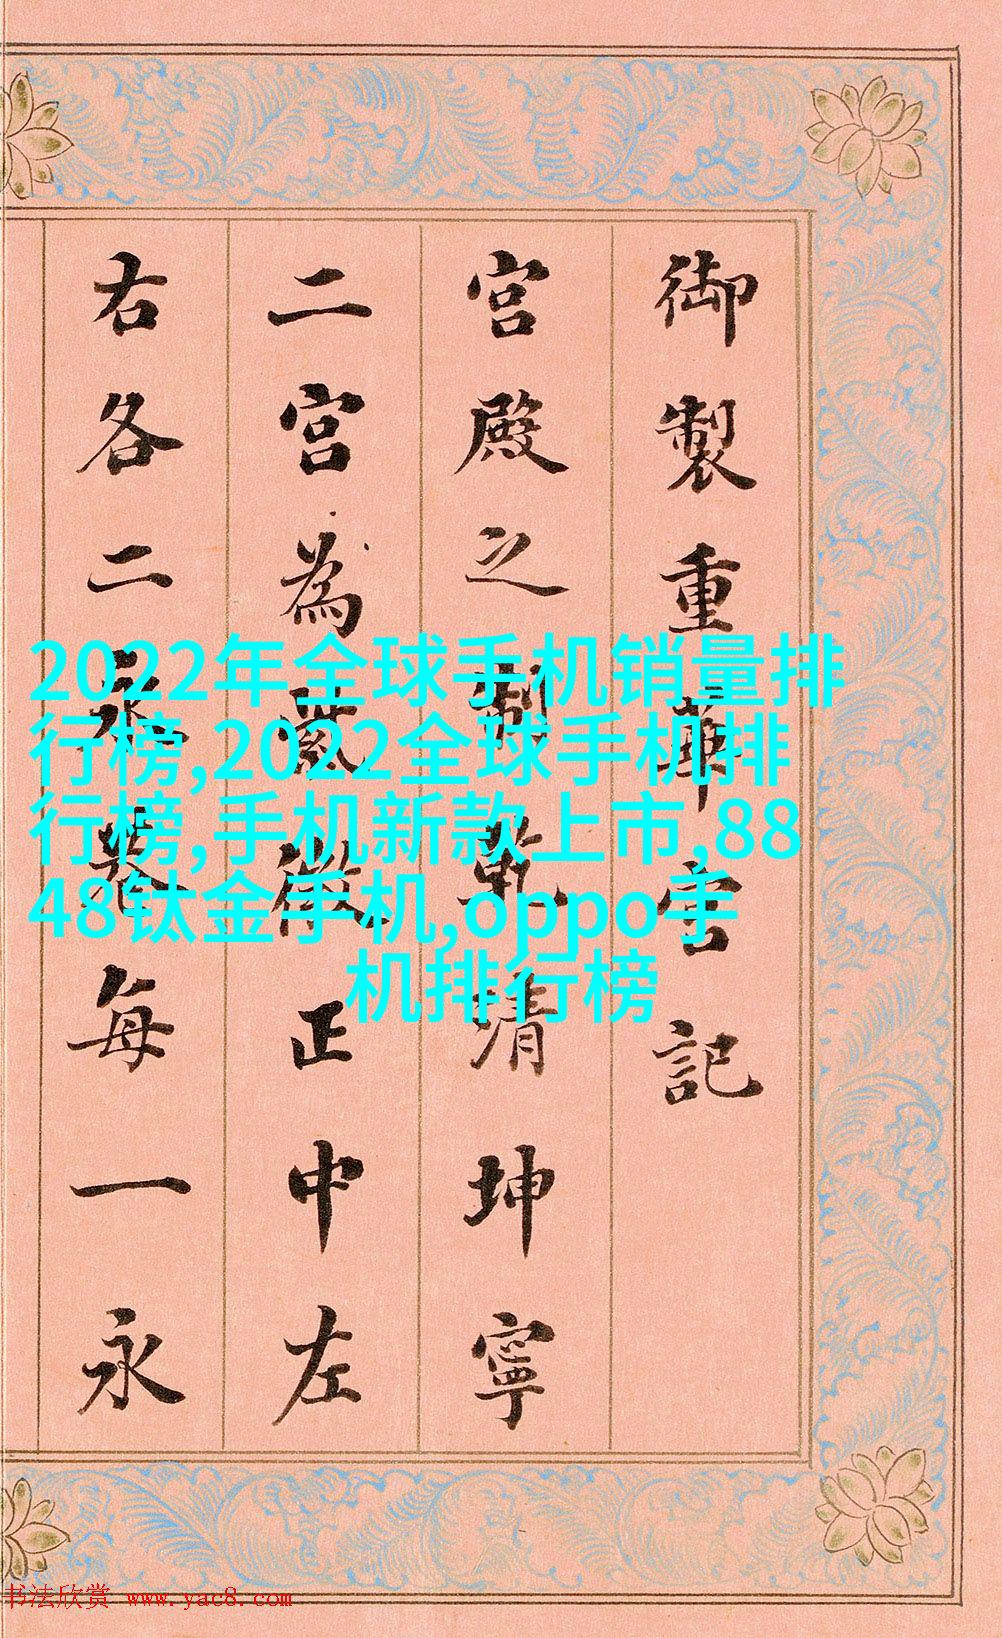 御製重華宮記
宮殿之制乾清坤寧
二宮為紫微正中左
右各二永巷每一永
2022年全球手机销量排
行榜,2022全球手机排
行榜,手机新款上市,88
48钛金手机,oppo手
机排行榜
书法欣赏 www.yac8.com